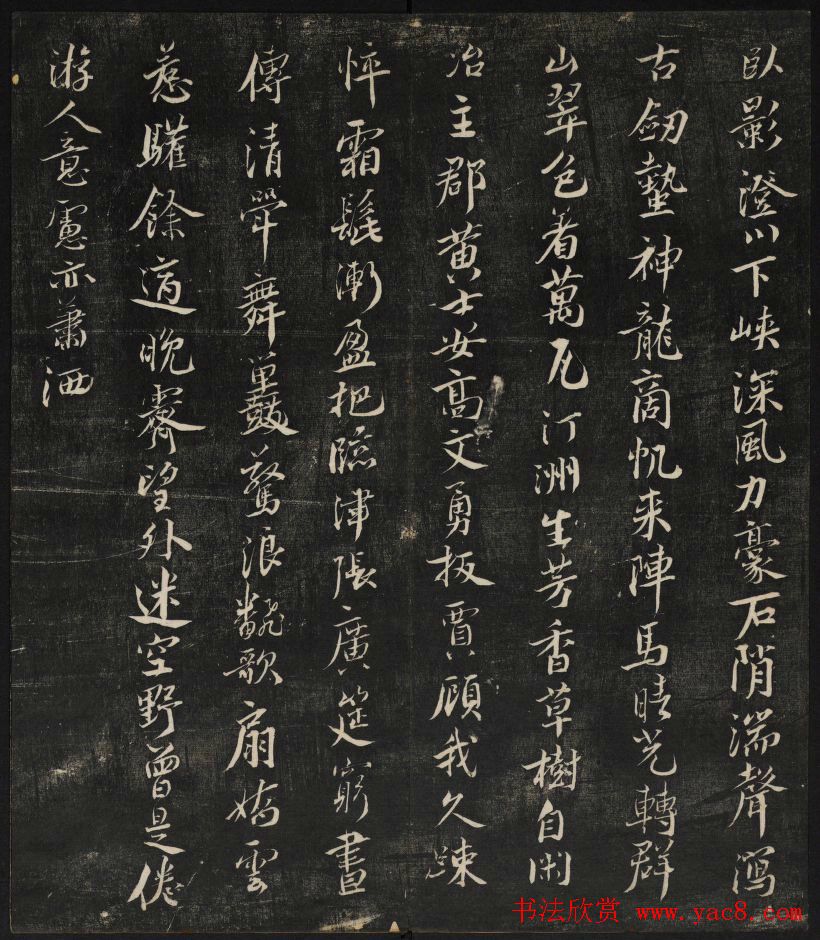 臥影澄川下峽深風力豪石陗湍聲瀉
古劒蟄神龍商帆来陣馬晴光轉群
山翠色着萬瓦汀洲生芳香草樹自閑
冶主郡黄士安高文勇扳賈顧我久疎
悴霜髭漸盈把臨津張廣筵窮晝
傳清斝舞䍐鼉鼓驚浪翻歌扇嬌雲
惹驩餘適晚霽望外迷空野曾是倦
游人意慮亦蕭洒
书法欣赏 www.yac8.com